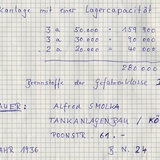 kanlage mit einer Lagercapacität
3 a 50.000 - 159 900
3 a 30.000 - 90 000
2 a 20.000 - 40 000
280 000
Brennstoffe der Gefahrenklasse
AUER: Alfred SMOLKA
TANKANLAGENBAU / KÖ
POONSTR 61.-
JAHR 1936 B N. 24